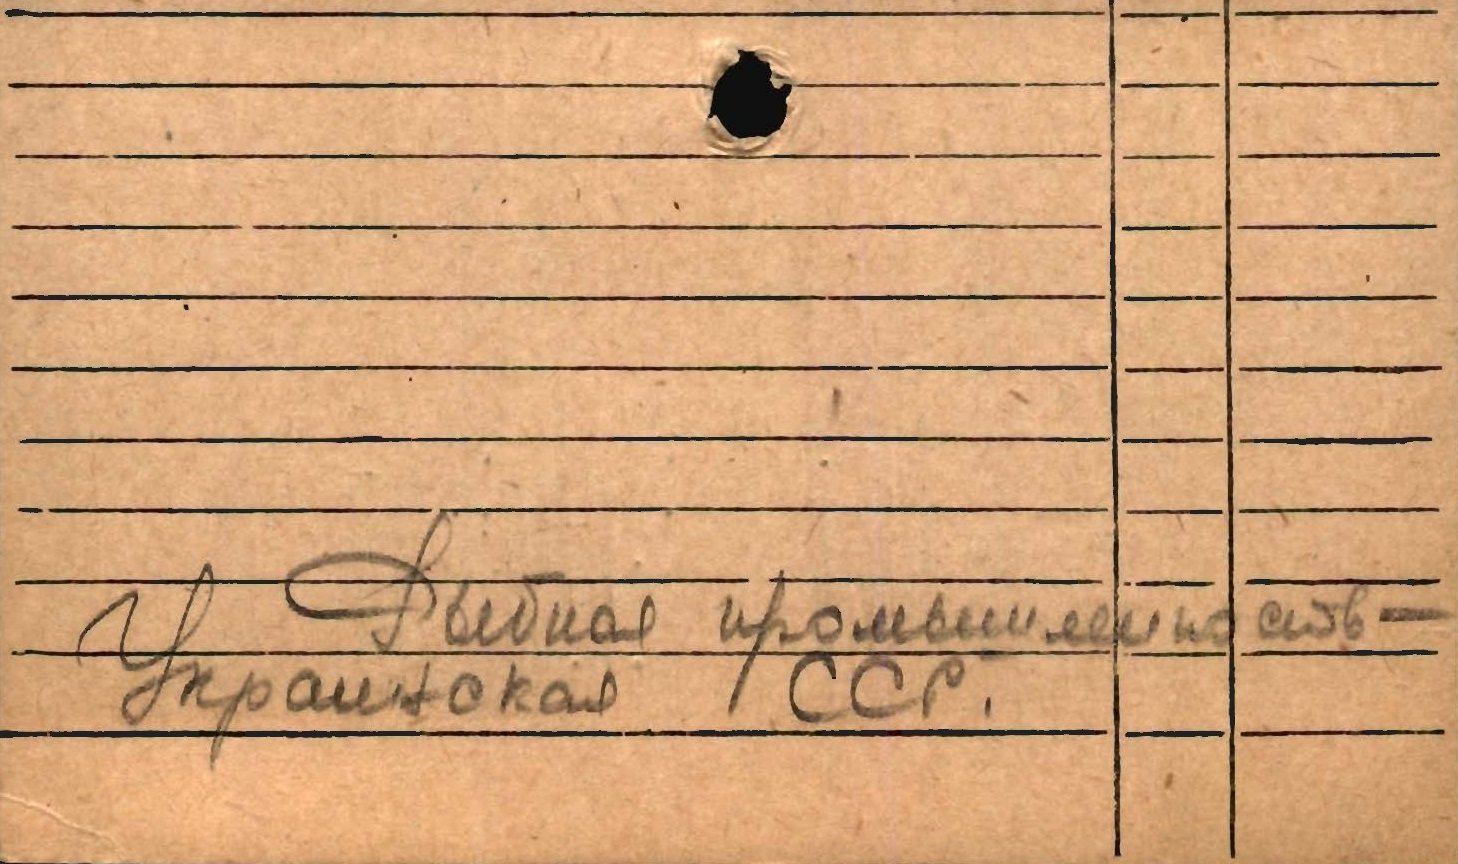 Рыбная промышленность —
Украинская ССР.